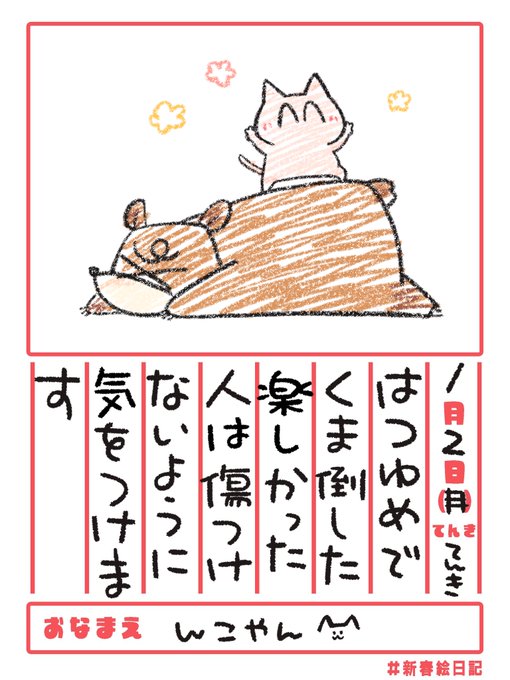 1月2日(月)てんきてんき
はつゆめで
くま倒した
楽しかった
人は傷つけ
ないように
気をつけま
す
おなまえ んこやん
#新春絵日記